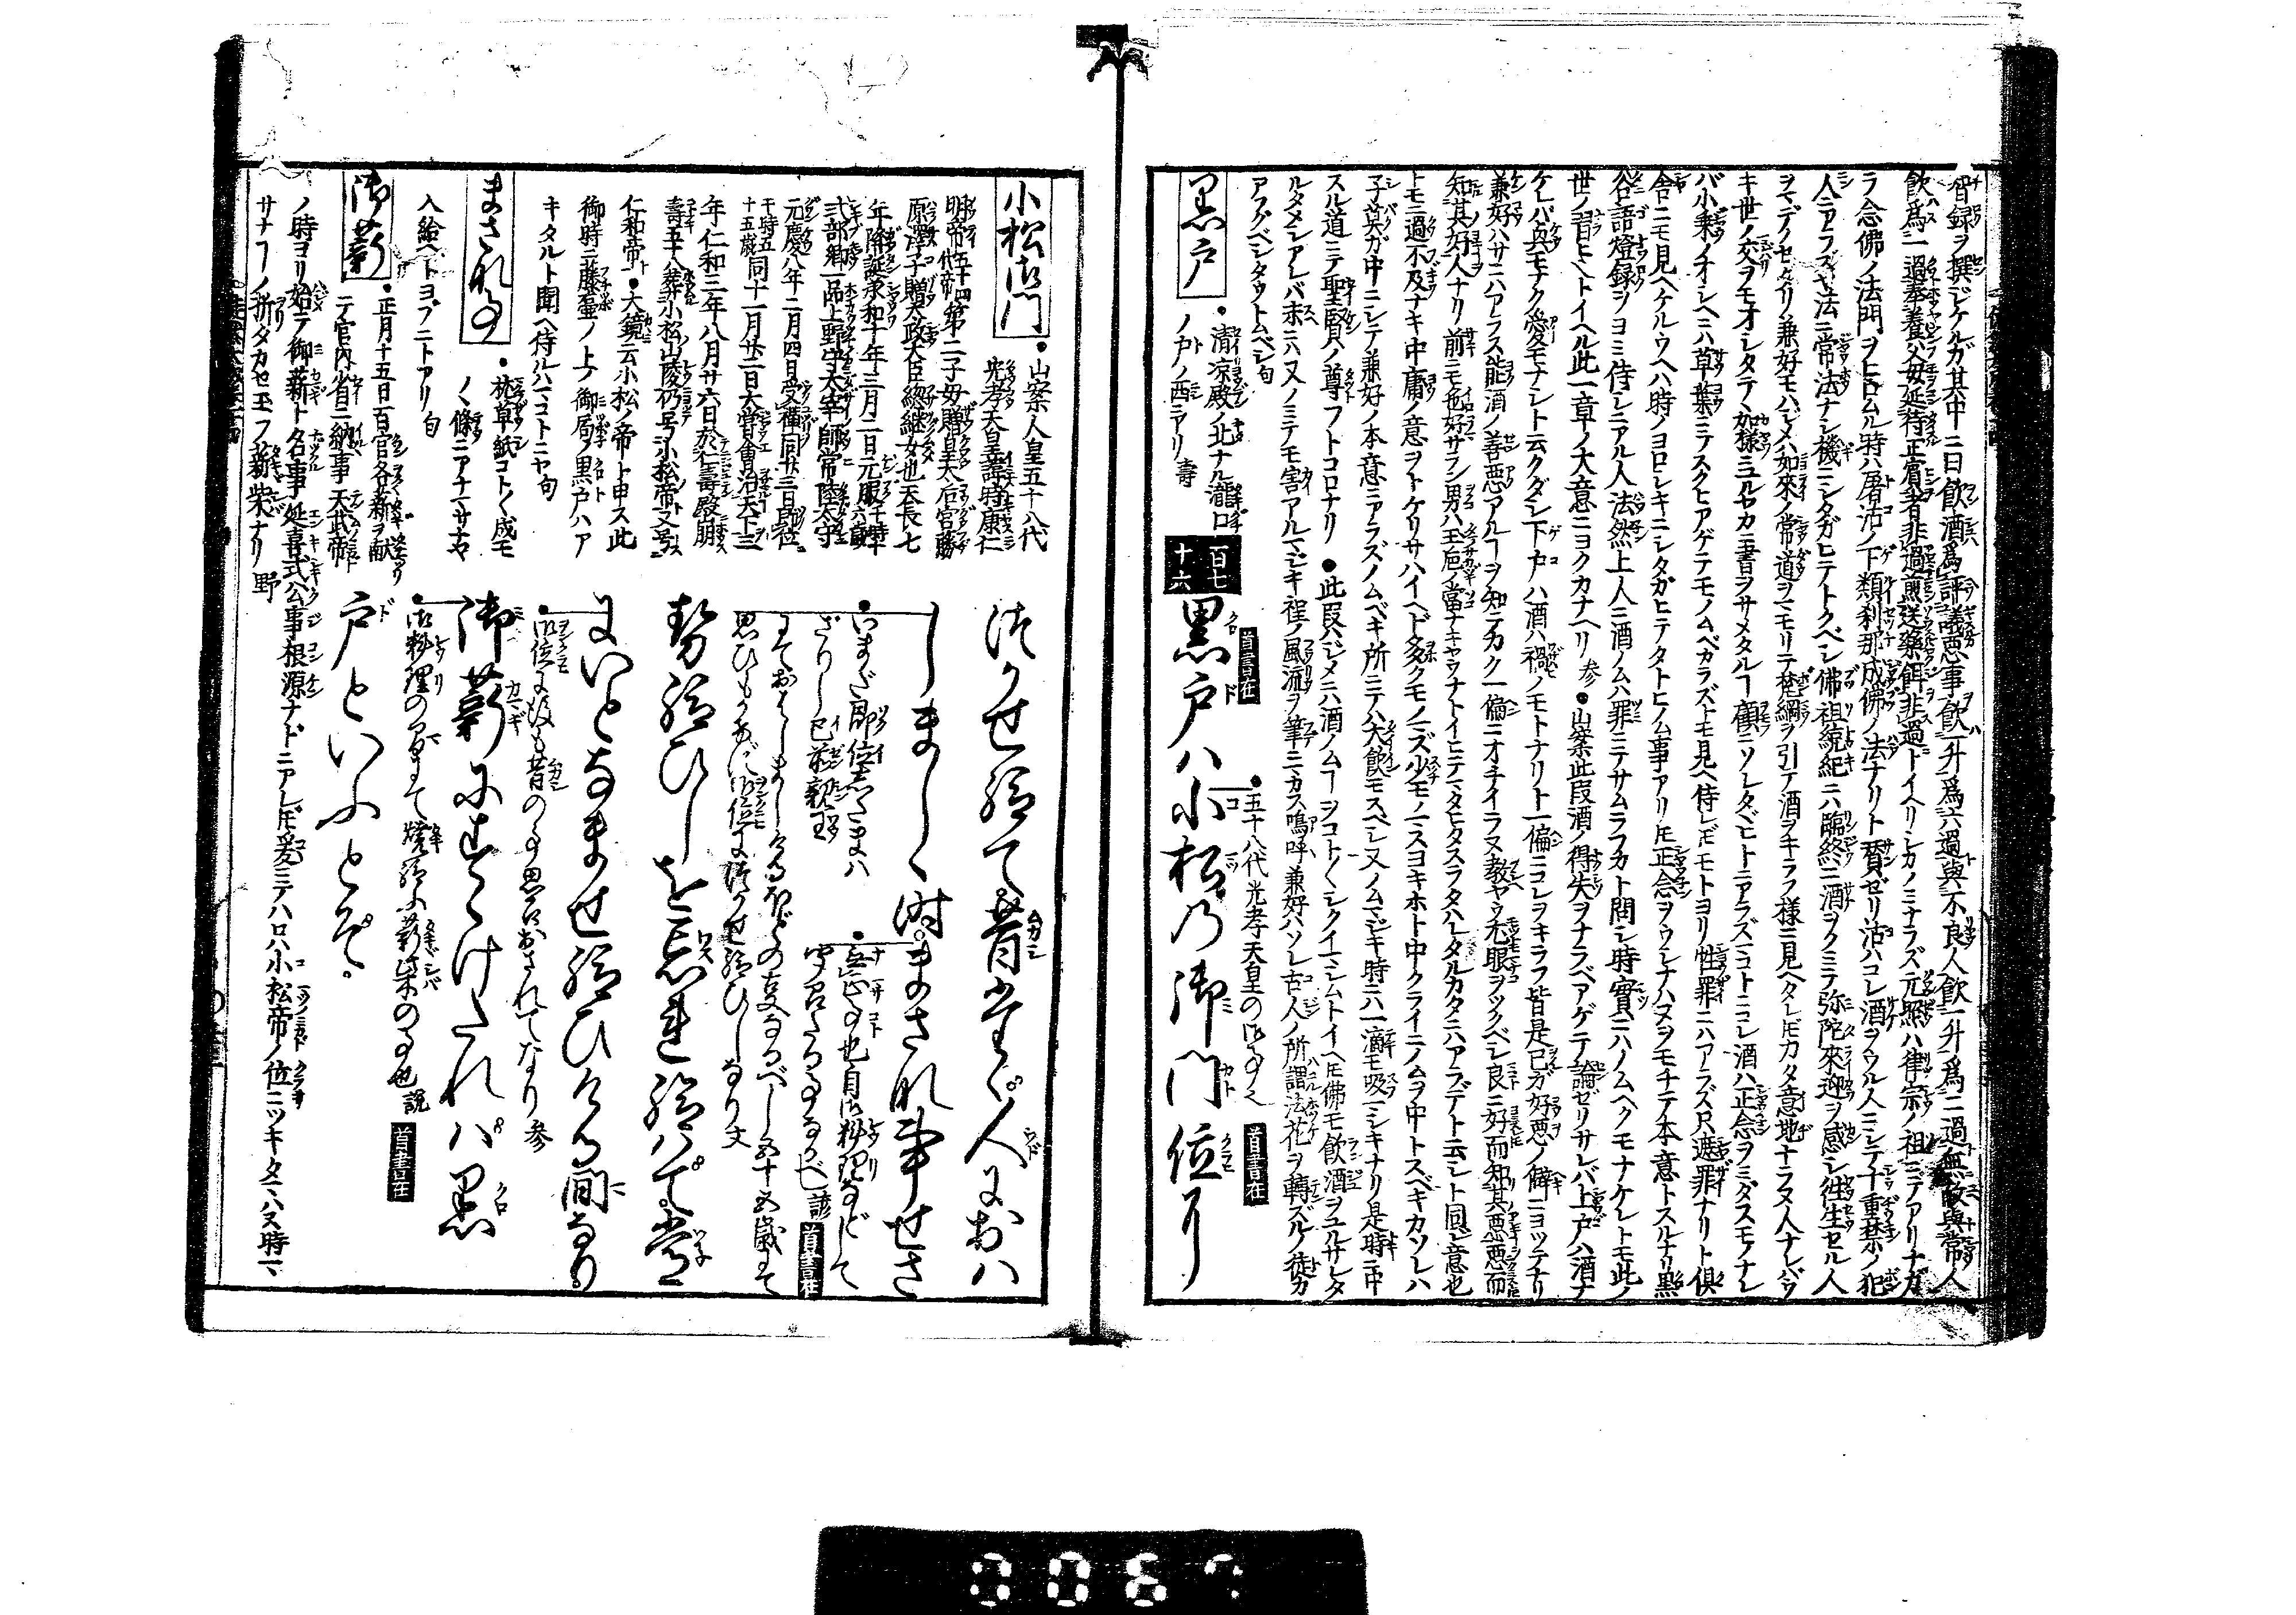 智録ヲ撰ジケルガ其中ニ曰飲酒為評義悪事飲一升為六過與不良人飲一升為二過無故與常人
飲為一過奉養父母延待正賓者非過煎送薬餌非過トイヘリシカノミナラズ元照ハ律宗ノ祖ニテアリナガ
ラ念佛ノ法門ヲヒロムル時ハ屠沽ノ下類刹那成佛ノ法ナリト賛ゼリ沽ハコレ酒ヲウル人ニシテ十重禁ノ犯
人ニアラズヤ法ニ常法ナシ機ニシタガヒテトクベシ佛祖統紀ニハ臨終ニ酒ヲクミテ弥陀來迎ヲ感シ往生セル人
ヲマデノセタリ兼好モハジメハ如來ノ常道ヲマモリテ梵網ヲ引テ酒ヲキラフ様ニ見ヘタレ𪜈カタ意地ナラヌ人ナレバウ
キ世ノ交ヲモオシタテヽ如様ニユルヤカニ書ヲサメタルヿ顧ニソレタヾヒトニアラズマコトニコレ酒ハ正念ヲミダスモノナレ
バ小乗ノオシヘニハ草葉ニテスクヒアゲテモノムベカラズトモ見ヘ侍レ𪜈モトヨリ性罪ニハアラズ只遮罪ナリト倶
舎ニモ見ヘケルウヘハ時ノヨロシキニシタガヒテタトヒノム事アリ𪜈正念ヲウシナハヌヲモチテ本意トスルナリ黒
谷語燈録ヲヨミ侍シニアル人法然上人ニ酒ノムハ罪ニテサムラフカト問シ時實ニハノムヘクモナケレトモ此ノ
世ノ習ヒトイヘル此一章ノ大意ニヨクカナヘリ 参 ●山案此段酒ノ得失ヲナラベアゲテ論ゼリサレバ上戸ハ酒ナ
ケレバ興モナク愛モナシト云クダシ下戸ハ酒ハ禍ノモトナリト一偏ニコレヲキラフ皆是己ガ好悪ノ僻ニヨツテナリ
兼好ハサニハアラス能酒ノ善悪アルヿヲ知テカク一偏ニオチイラヌ教ヤウ尤眼ヲツクベシ良ニ好而知其悪悪而
知其好人ナリ前ニモ色好サラン男ハ玉巵ノ當ナキヤウナトイヒテマタヒタスラタハレタルカタニハアラデト云シト同シ意也
トモニ過不及ナキ中庸ノ意ヲトケリサハイヘド多クモノマズ少モノマスヨキホト中クライニノムヲ中トスベキカソレハ
子莫ガ中ニシテ兼好ノ本意ニアラズノムベキ所ニテハ大飲モスベシ又ノムマジキ時ニハ一滴モ吸マシキナリ是時ニ中
スル道ニテ聖賢ノ尊フトコロナリ ●此段ハジメニハ酒ノムヿヲコト〱クイマシムトイヘ𪜈佛モ飲酒ヲユルサレタ
ルタメシアレバ末ニハ又ノミテモ害アルマジキ程ノ風流ヲ筆ニカス嗚呼兼好ハソレ古人ノ所謂法花ヲ轉ズルノ徒カ
アフグベシタウトムベシ 句
黒戸
●清凉殿ノ北ナル瀧口
ノ戸ノ西ニアリ 壽
百七十六
首書在
黒戸ハ小松乃御門位に
●五十八代光孝天皇の御事也
首書在
小松御門
●山案人皇五十八代
光孝天皇諱時康仁
明帝五十四代帝第二子母贈皇太后宮藤
原澤子贈太政大臣総継女也天長七
年降誕承和十年二月二日元服于時十六歳
式部卿一品上野守太宰師常陸太守
元慶八年二月四日受禅同廿三日即位
于時五十五歳同十一月廿二日大嘗會治天下三
年仁和三年八月廿六日於仁壽殿崩
壽五十八葬小松山陵仍号小松帝又号
仁和帝 ●大鏡云小松ノ帝ト申ス此
御時ニ藤壺ノ上ノ御局ノ黒戸ハア
キタルト聞ヘ侍ルハマコトニヤ 句
まさな事
●枕草紙コト〱成モ
ノヽ條ニアナマサナヤ
入給ヘトヨブニトアリ 句
御薪
●正月十五日百官各薪ヲ献
テ宮内省ニ納事天武帝
ノ時ヨリ始テ御薪ト名事延喜式公事根源ナドニアレ𪜈爰ニテハロハ小松帝ノ位ニツキタマハヌ時マ
サナヿノ折タカセ玉フ薪柴ナリ 野
つかせ給て昔たゞ人におハ
しましゝ時まさな事せさ
●いまだ即位したまハ
ざりし已前親王
にておはしましける
●無正事也自御料理などして
きこしめしたる事なるべし 諺 首書在
思ひもかけず御位につかせ給ひしなり 文
勢給ひしを忘れ給ハで常
にいとなませ給ひける間なり
●御位に後も昔の事思召出されてなり 参
御薪にすゝけたれバ黒
●御料理の為にて焼給ふ薪柴の事也 説 首書在
戸といふとぞ
0067